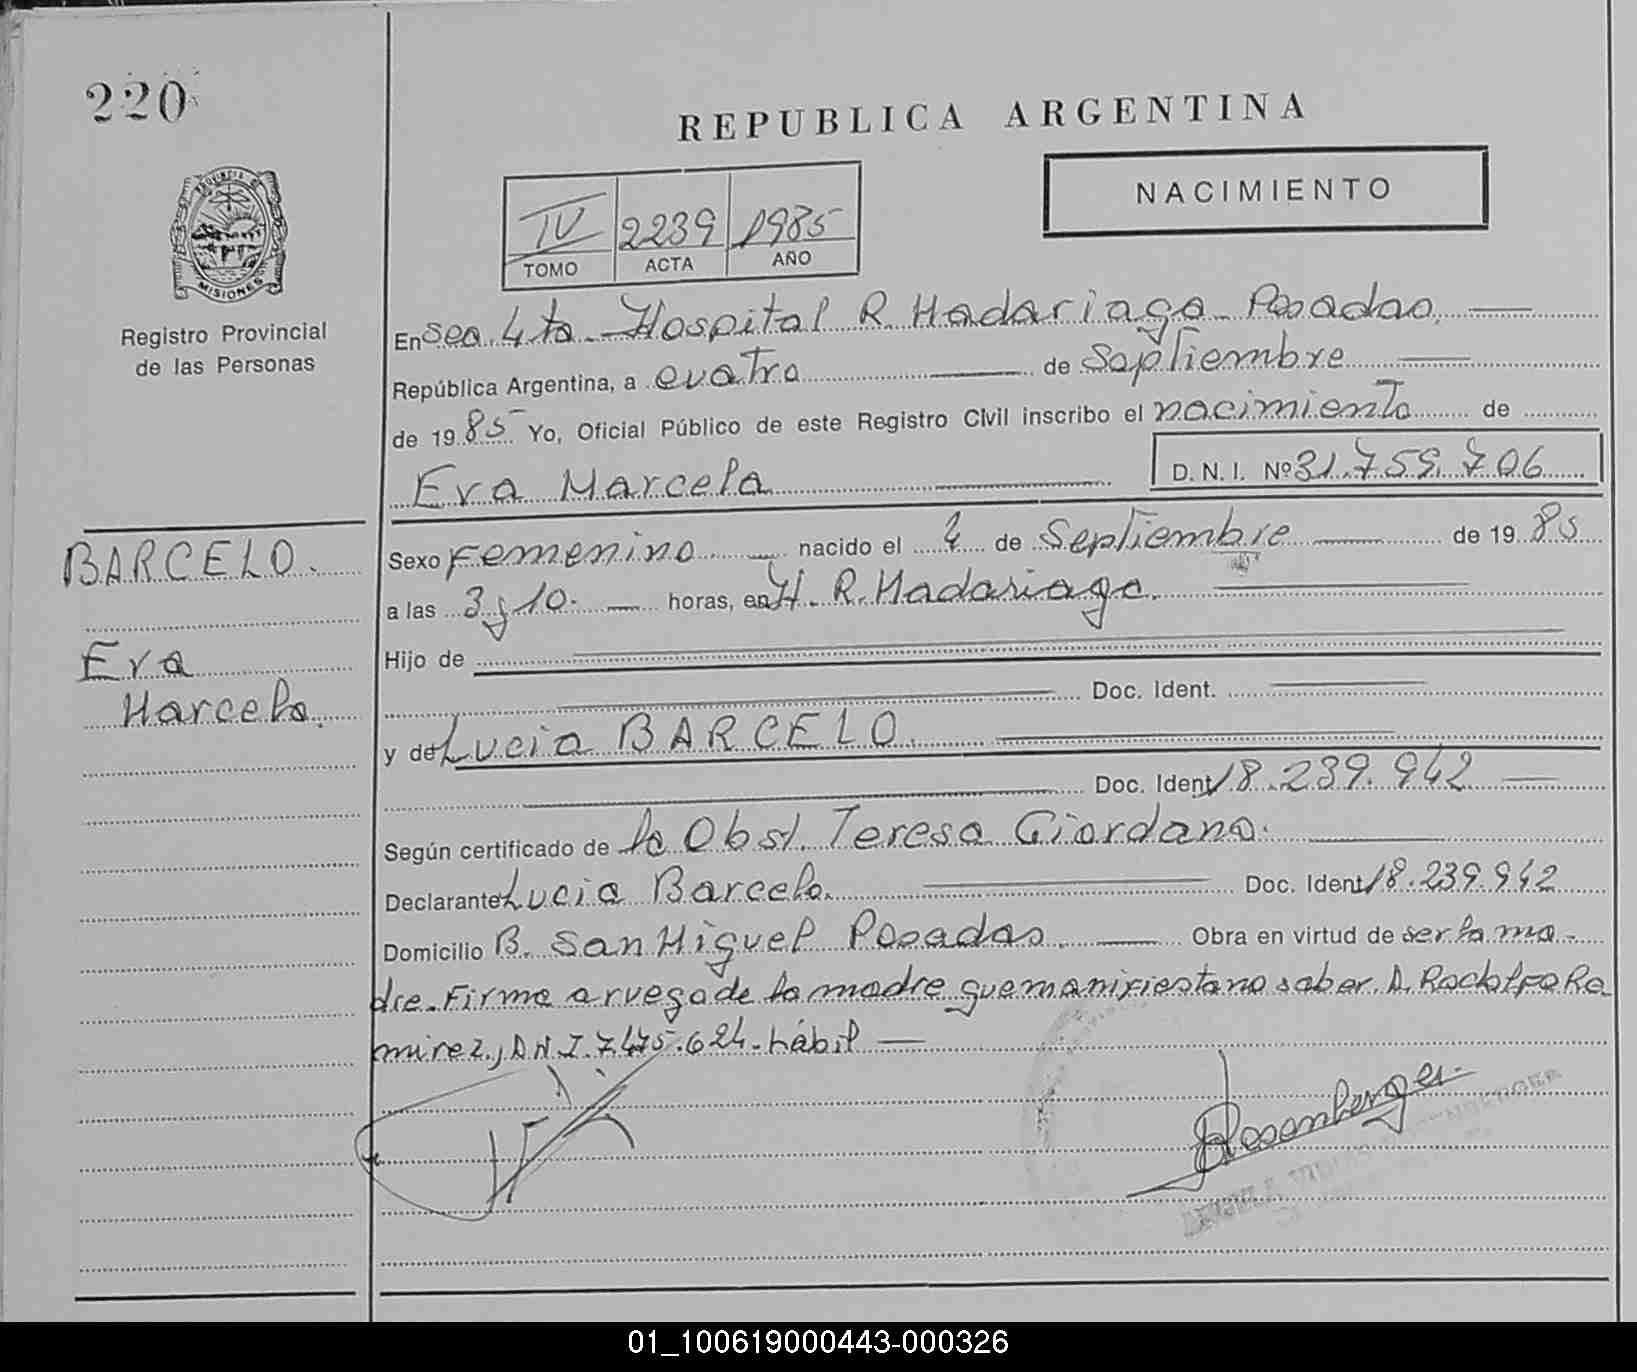 220
REPUBLICA ARGENTINA
PROVINCIA DE
MISIONES
Registro Provincial
de las Personas
NACIMIENTO
IV 2239 1985
TOMO ACTA AÑO
En Sec. 4ta. Hospital R. Madariaga. Posadas.
República Argentina, a cuatro de Septiembre
de 1985 Yo, Oficial Público de este Registro Civil inscribo el nacimiento de
Eva Marcela D.N.I. Nº 31.759.706
BARCELO.
Eva
Marcela.
Sexo Femenino nacido el 4 de Septiembre de 1985
a las 3 y 10. horas, en H. R. Madariaga.
Hijo de
Doc. Ident.
y de Lucia BARCELO.
Doc. Ident 18.239.942
Según certificado de la Obst. Teresa Giordano.
Declarante Lucia Barcelo. Doc. Ident 18.239.942
Domicilio B. San Miguel Posadas. Obra en virtud de ser la ma-
dre. Firma a ruego de la madre que manifiesta no saber. D. Rodolfo Ra
mirez, D.N.I. 7.475.624. hábil
Rosenberger
01_100619000443-000326